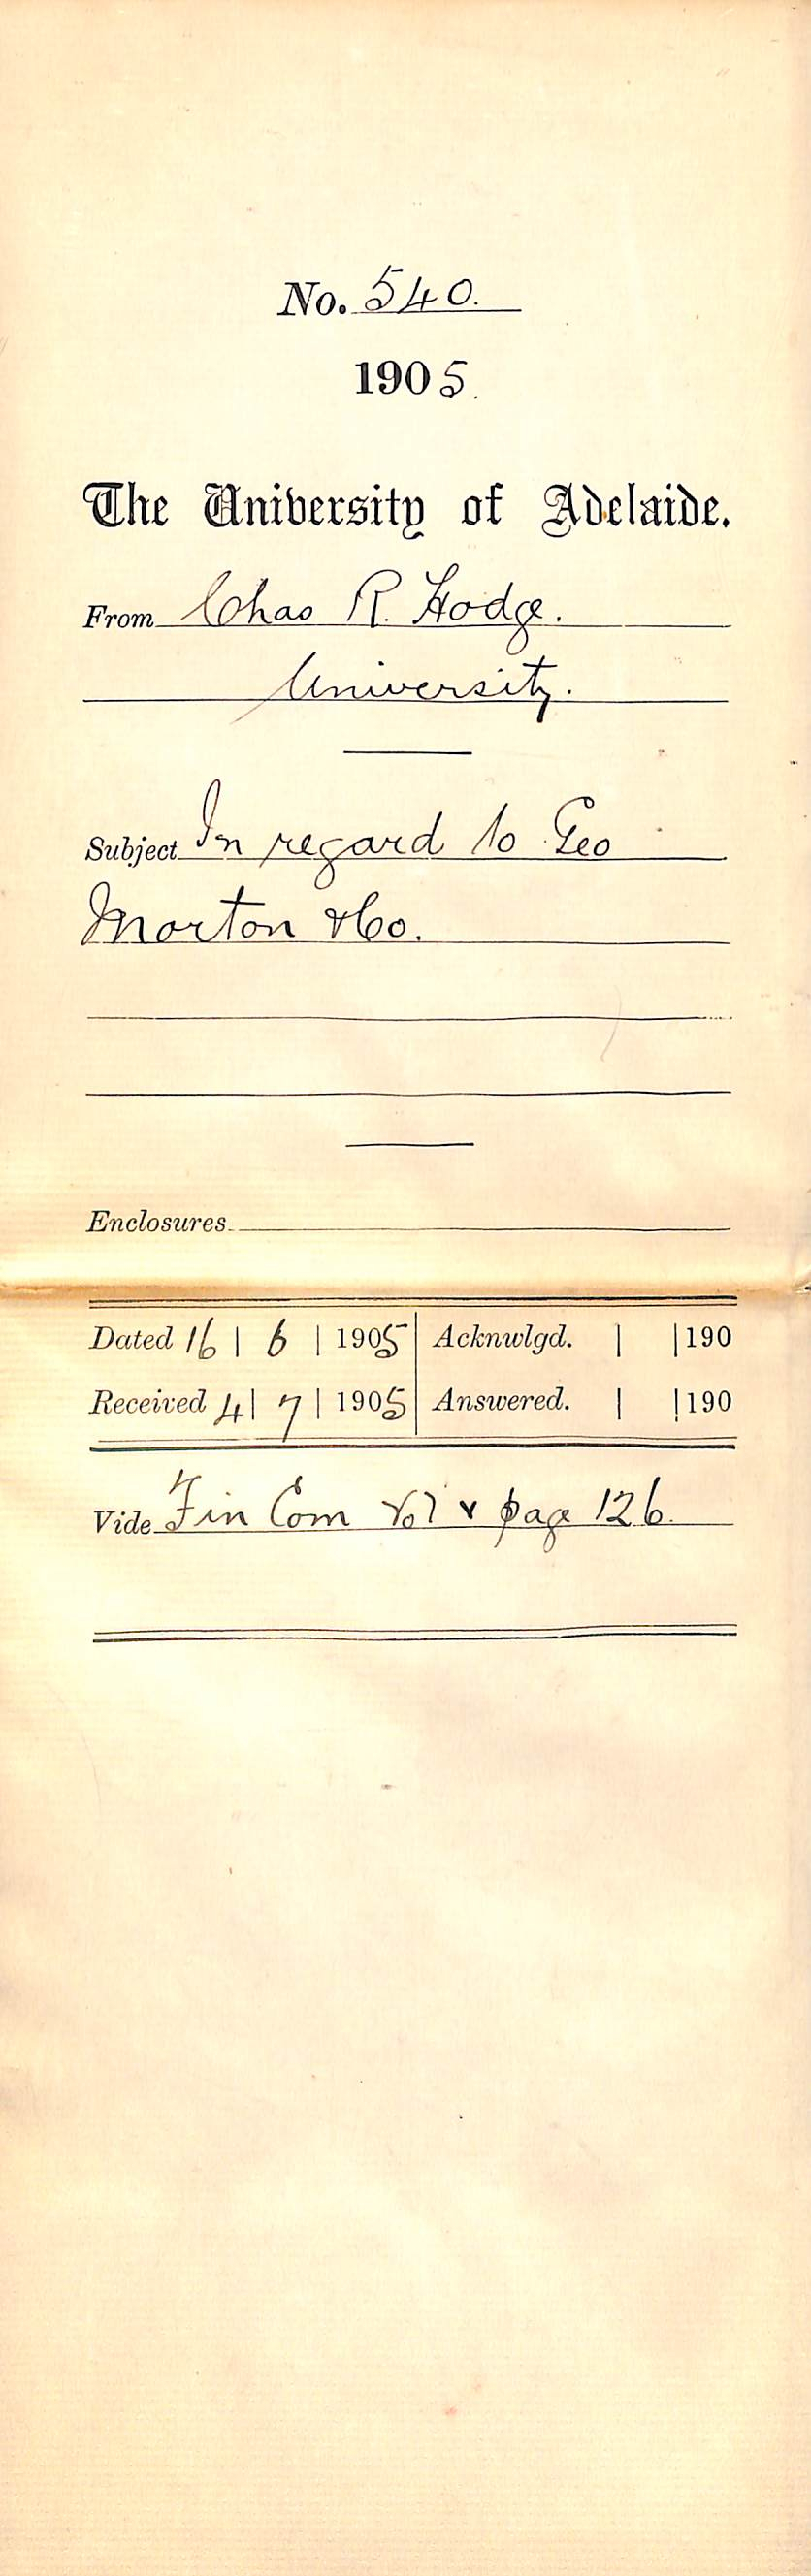 No. 540.
1905.
The University of Adelaide.
From Chas R. Hodge.
University.
Subject In regard to Geo
Morton & Co.
Enclosures
Dated 16 | 6 | 1905 | Acknwlgd. | | 190
Received 4 | 7 | 1905 | Answered. | | 190
Vide Fin Com Vol v page 126.